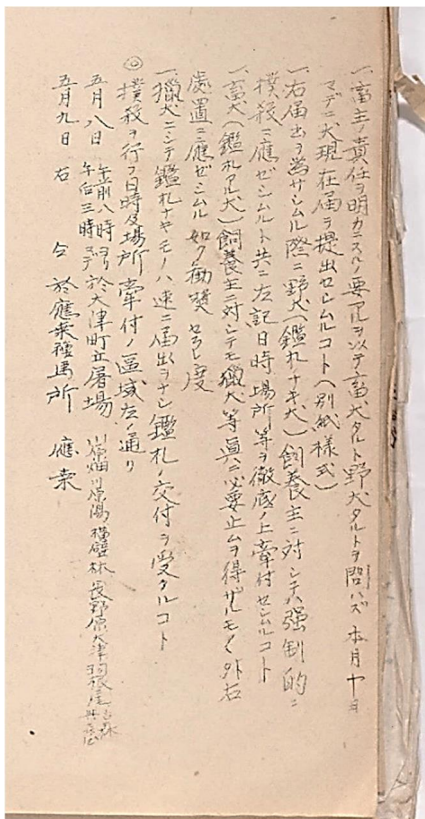 一、畜主ノ責任ヲ明カニスルノ要アルヲ以テ畜犬タルト野犬タルトヲ問ハズ 本月十日
マデニ犬現在届ヲ提出セシムルコト(別紙様式)
一、右届出ヲ為サシムル際ニ野犬(鑑札ナキ犬)飼養主ニ対シテハ強制的ニ
撲殺ニ應ゼシムルト共ニ左記日時場所等ヲ徹底ノ上牽付セシムルコト
一、畜犬(鑑札アル犬)飼養主ニ対シテモ猟犬等真ニ必要止ムヲ得ザルモノノ外右
處置ニ應ゼシムル如ク勧奨セラレ度
一、猟犬ニシテ鑑札ナキモノハ速ニ届出ヲナシ鑑札ノ交付ヲ受クルコト
◎撲殺ヲ行フ日時及場所牽付ノ區域左ノ通リ
五月八日 午前八時ヨリ 午后三時マデ 於大津町立屠場 川原畑 川原湯 横壁 林 長野原 大津 羽根尾
五月九日 右 仝 於應桑 應桑